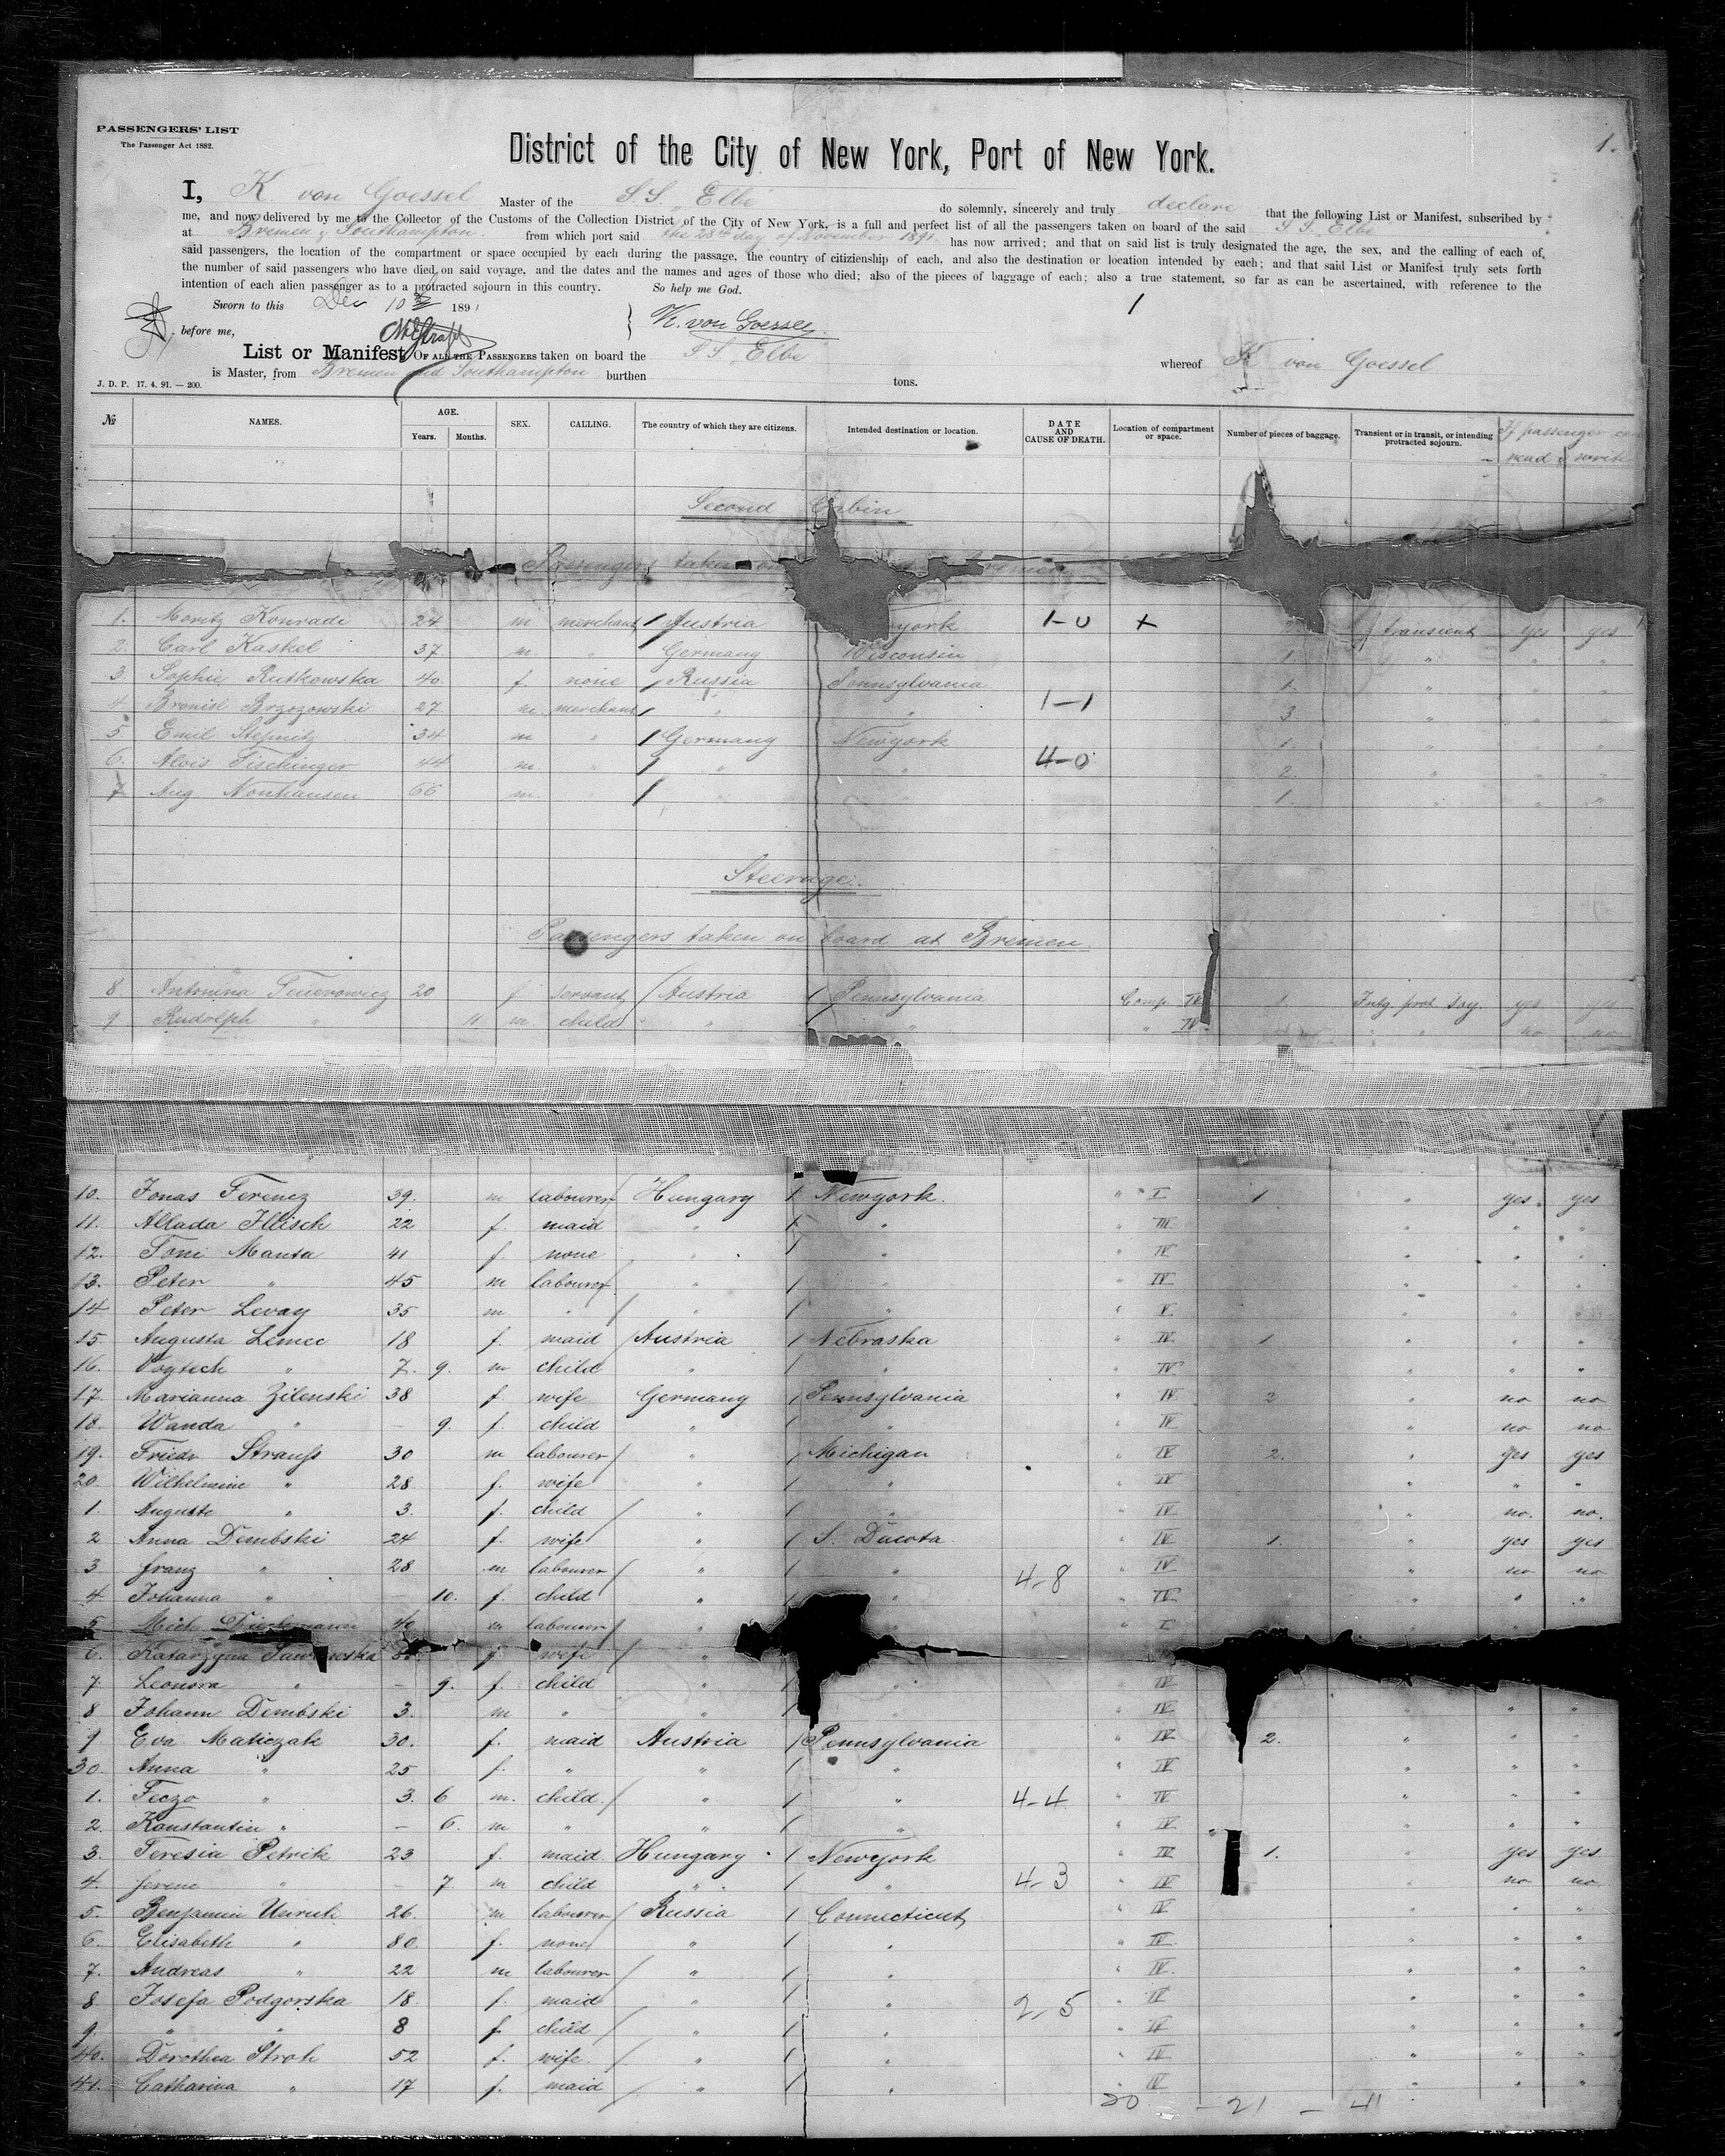 PASSENGERS' LIST
The Passenger Act 1882.
1.
District of the City of New York, Port of New York.
I, K. von Goessel Master of the S.S. "Elbe" do solemnly, sincerely and truly declare that the following List or Manifest, subscribed by
me, and now delivered by me to the Collector of the Customs of the Collection District of the City of New York, is a full and perfect list of all the passengers taken on board of the said S S Elbe
at Bremen & Southampton from which port said the 28th day of November 1891 has now arrived; and that on said list is truly designated the age, the sex, and the calling of each of
said passengers, the location of the compartment or space occupied by each during the passage, the country of citizienship of each, and also the destination or location intended by each; and that said List or Manifest truly sets forth
the number of said passengers who have died on said voyage, and the dates and the names and ages of those who died; also of the pieces of baggage of each; also a true statement, so far as can be ascertained, with reference to the
intention of each alien passenger as to a protracted sojourn in this country. So help me God.
Sworn to this Dec 10th 1891
before me, } K. von Goessel
List or Manifest OF ALL THE PASSENGERS taken on board the S S "Elbe whereof K von Goessel
is Master, from Bremen and Southampton burthen tons.
J. D. P. 17. 4. 91. — 200.
№ NAMES. AGE. Years. Months. SEX. CALLING. The country of which they are citizens. Intended destination or location. DATE AND CAUSE OF DEATH. Location of compartment or space. Number of pieces of baggage. Transient or in transit, or intending protracted sojourn. If passenger can read & write
Second Cabin
Passengers taken on
1. Moritz Konradi 24 m merchant 1 Austria york 1-0 + transient yes yes
2. Carl Kaskel 37 m. " Germany Wisconsin 1. " " "
3. Sophie Rutkowska 40. f. none / Russia Pennsylvania 1. " " "
4. Bronisl Brzozowski 27. m. merchant / " " 1-1 3 " " "
5 Emil Stepnitz 34 m " 1 Germany Newyork 1. " " "
6. Alois Fischinger 44 m. " 1 " " 4-0 2. " " "
7 Aug Nonhausen 66 m. " 1 1. " " "
Steerage.
Passengers taken on board at Bremen.
8 Antonina 20 f servant / Austria / Pennsylvania Comp. IV 1. yes yes
9 Rudolph " 11. m. child " " " " IV " " no no
10. Jonas Ferencz 39. m labourer / Hungary 1 Newyork. " I 1 " yes yes
11. Allada Illisch 22 f. maid " 1 " " III " " "
12. Toni Manta 41 f. none " / " " IV " " "
13. Peter " 45 m labourer / " / " " IV " " "
14 Peter Levay 35 m " / " / " " V " " "
15 Augusta Lemec 18 f. maid / Austria 1 Nebraska " IV 1 " " "
16. Voytech " 7. 9. m child " / " " IV " " "
17. Marianna Zilenski 38 f wife Germany 1 Pennsylvania " IV 2 " no no
18. Wanda " — 9. f. child " / " " IV " no no
19. Friedr Strauß 30 m labourer / " / Michigan " IV 2. " yes yes
20. Wilhelmine " 28 f. wife " / " " IV " " "
1. Auguste " 3. f. child / " / " " IV " no. no.
2 Anna Dembski 24 f. wife " 1 S. Dacota " IV 1. " yes yes
3 franz " 28 m labourer / " " 4-8 " IV " no no
4 Johanna " — 10. f. child " " " IV " " "
5 Mich 40 m labourer / " " " I " " "
6. Katarzyna f wife / "
7. Leonora " — 9. f. child " / " " IV
8 Johann Dembski 3. m " " " " IV " " "
9 Eva Maticzak 30. f. maid Austria 1 Pennsylvania " IV 2. " " "
30. Anna " 25 f. " " / " " IV " " "
1. Feczo " 3. 6 m. child. / " / " 4-4 " IV " " "
2. Konstantin " — 6. m " " / " " IV " " "
3. Teresia Petrik 23 f. maid. Hungary 1 Newyork " IV 1. " yes yes
4. ferenc " — 7 m child " / " 4-3 " IV " no no
5. Benjamin Unruh 26. m labourer / Russia 1 Connecticut " IV " " "
6. Elisabeth " 80. f. none " / " " IV " " "
7. Andreas " 22 m labourer / " / " " IV " " "
8 Josefa Podgorska 18. f. maid " / " 2-5 " IV " " "
9. " " 8 f. child / " / " " IV " " "
40. Dorothea Stroh 52 f. wife. / " / " " IV " " "
41. Catharina " 17 f. maid / " / " " IV " " "
20 - 21 - 41